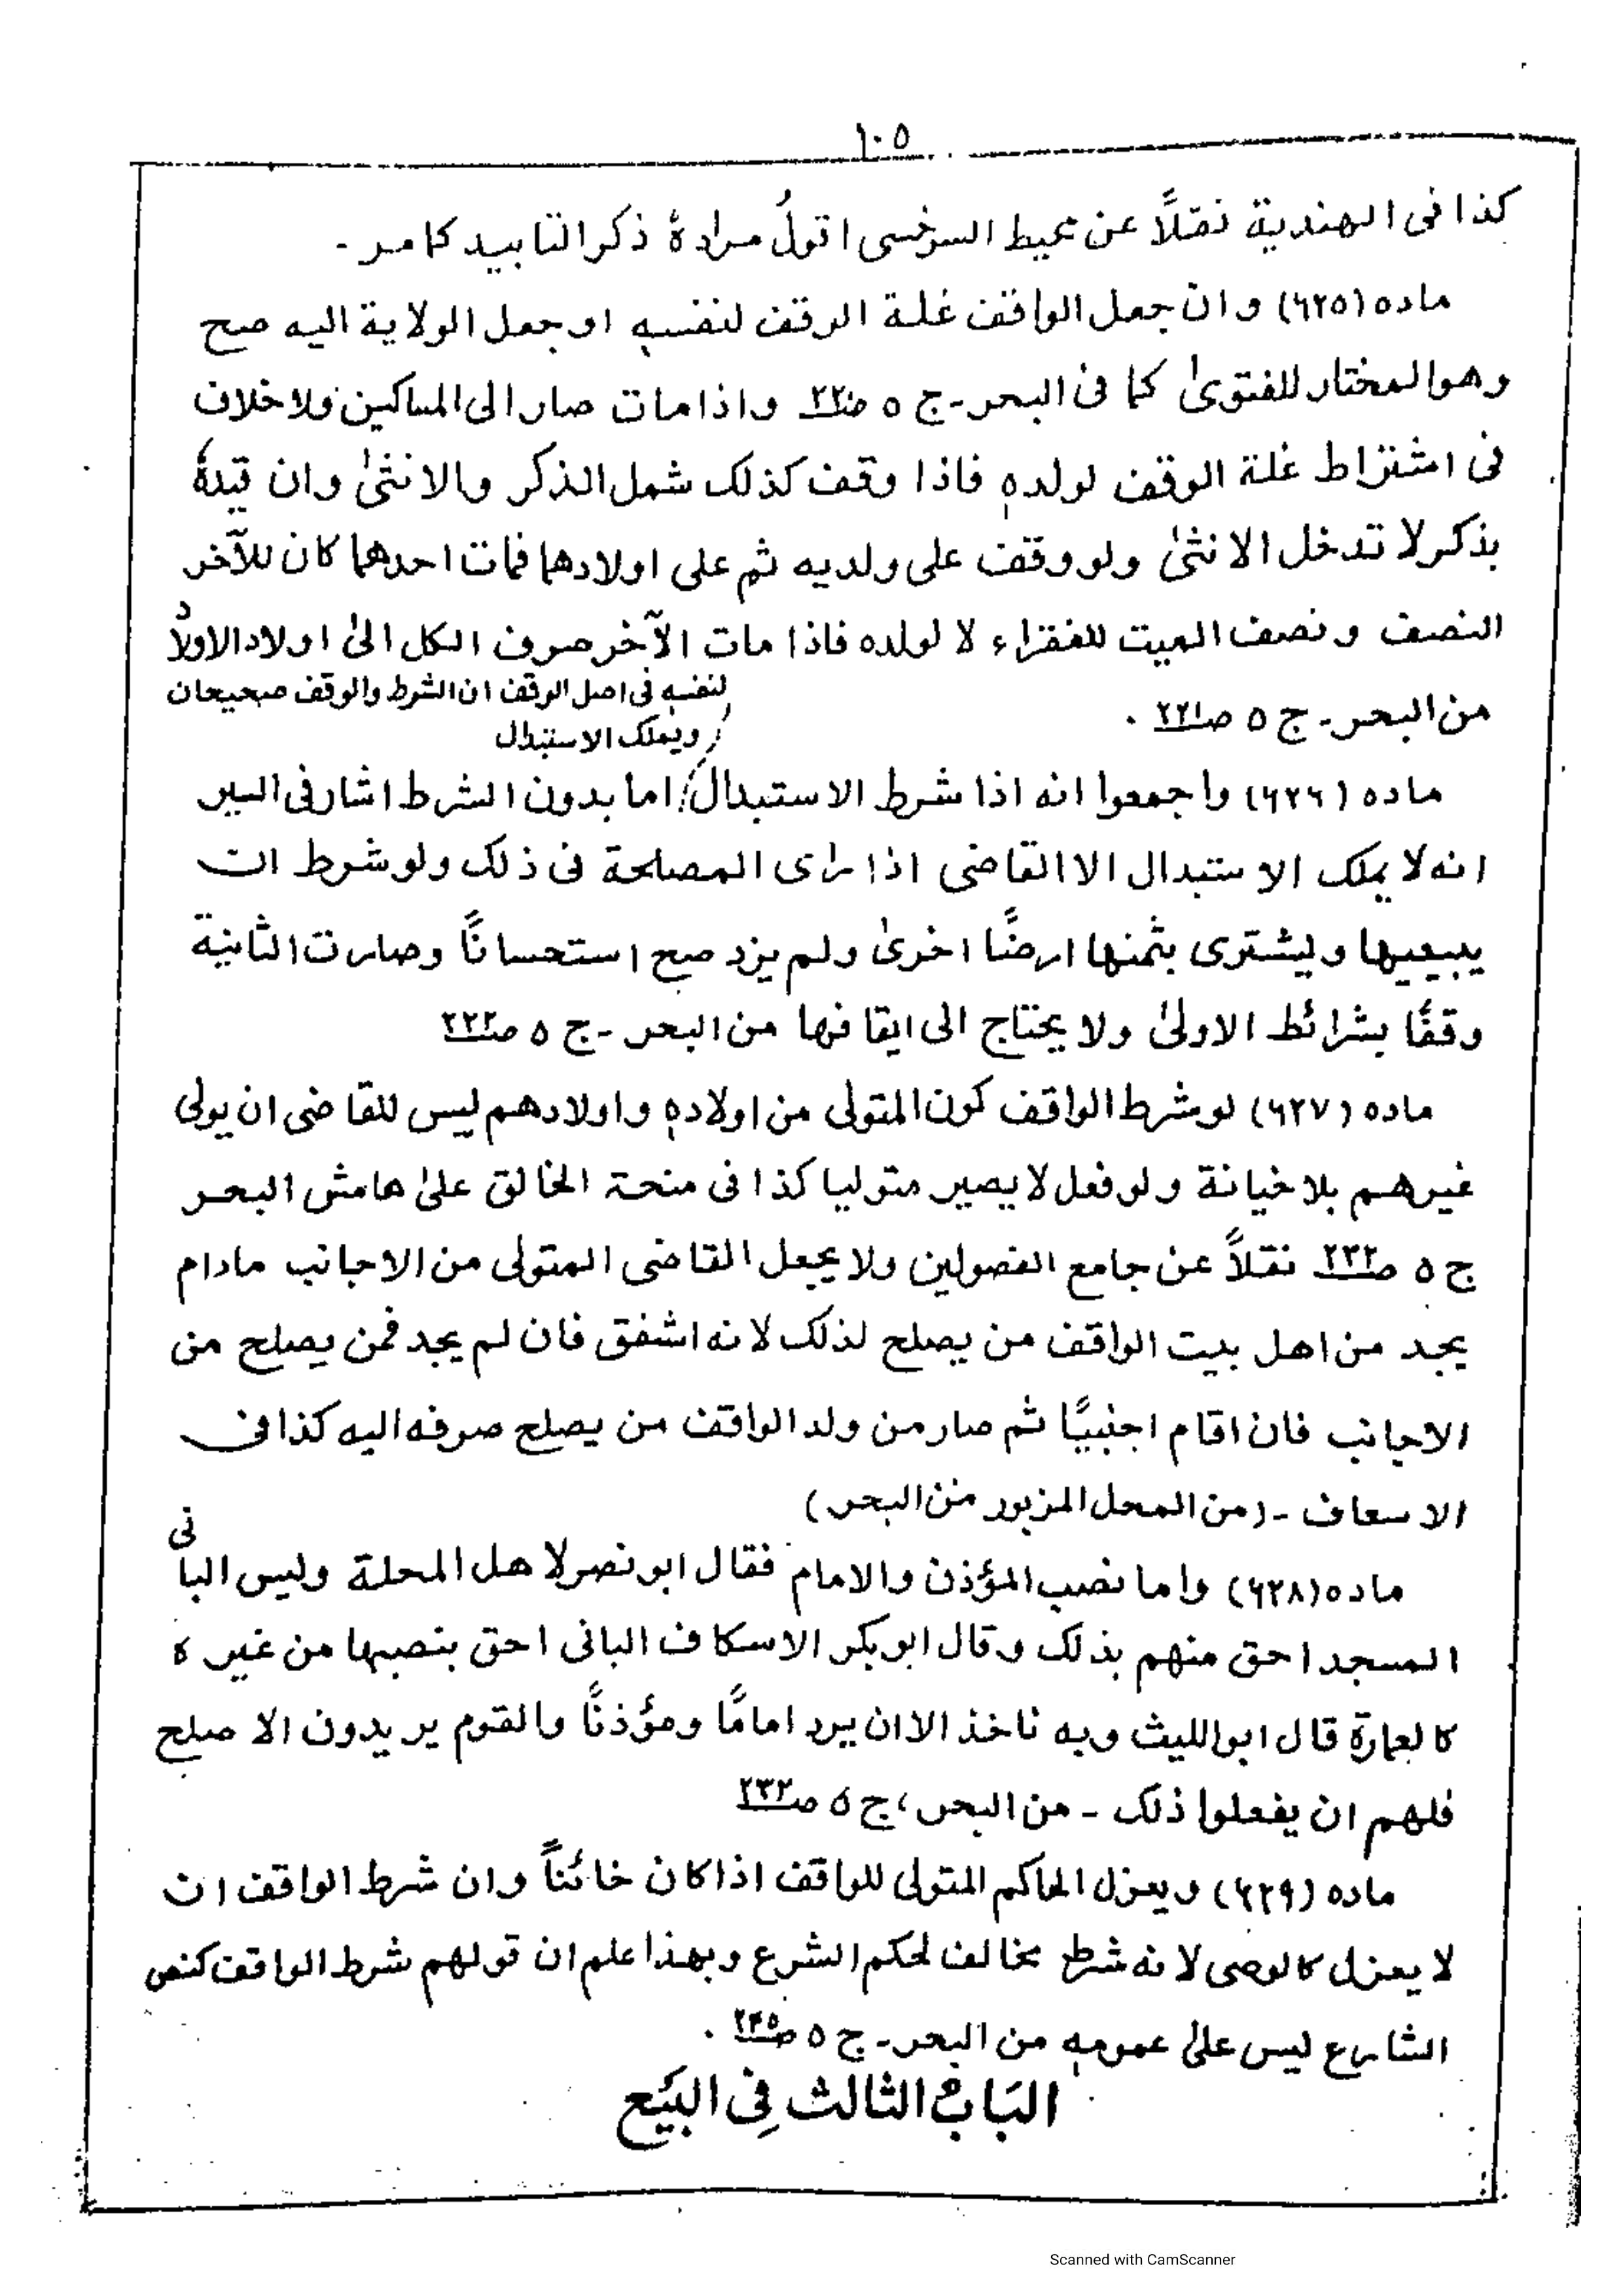 ١٠٥
كذا فى الهندية نقلًا عن محيط السرخسى اقولُ مرادهٗ ذكر التابيد كما مر -
ماده (٦٢٥) وان جعل الواقف غلة الوقف لنفسهٖ او جعل الولاية اليه صح
وهو المختار للفتوىٰ كما فى البحر - ج ٥ صـ٢٢٠ واذا مات صار الى المساكين ولا خلاف
فى اشتراط غلة الوقف لولدهٖ فاذا وقف كذلك شمل الذكر والانثىٰ وان قيدهٗ
بذكر لا تدخل الانثىٰ ولو وقف على ولديه ثم على اولادهما فمات احدهما كان للآخر
النصف ونصف الميت للفقراء لا لولده فاذا مات الآخر صرف الكل الىٰ اولاد الاولاد
من البحر - ج ٥ صـ٢٢١ .
لنفسهٖ فى اصل الوقف ان الشرط والوقف صحيحان
ويملك الاستبدال
ماده (٦٢٦) واجمعوا انه اذا شرط الاستبدال / اما بدون الشرط اشار فى السير
انه لا يملك الاستبدال الا القاضى اذا راى المصلحة فى ذلك ولو شرط ان
يبيعيها ويشترى بثمنها ارضًا اخرىٰ ولم يزد صح استحسانًا وصارت الثانية
وقفًا بشرائط الاولىٰ ولا يحتاج الى ايقافها من البحر - ج ٥ صـ٢٢٢
ماده (٦٢٧) لو شرط الواقف كون المتولى من اولادهٖ واولادهم ليس للقاضى ان يولى
غيرهم بلا خيانة ولو فعل لا يصير متوليا كذا فى منحة الخالق علىٰ هامش البحر
ج ٥ صـ٢٣٢ نقلًا عن جامع الفصولين ولا يجعل القاضى المتولى من الاجانب مادام
يجد من اهل بيت الواقف من يصلح لذلك لانه اشفق فان لم يجد فمن يصلح من
الاجانب فان اقام اجنبيًا ثم صار من ولد الواقف من يصلح صرفه اليه كذا فى
الاسعاف - (من المحل المزبور من البحر)
ماده (٦٢٨) واما نصب المؤذن والامام فقال ابو نصر لاهل المحلة وليس البانى
المسجد احق منهم بذلك وقال ابوبكر الاسكاف البانى احق بنصبها من غيره
كالعمارة قال ابو الليث وبه ناخذ الا ان يرد امامًا ومؤذنًا والقوم يريدون الاصلح
فلهم ان يفعلوا ذلك - من البحر، ج ٥ صـ٢٣٢
ماده (٦٢٩) ويعزل الحاكم المتولى للواقف اذا كان خائنًا وان شرط الواقف ان
لا يعزل كالوصى لانه شرط مخالف لحكم الشرع وبهذا علم ان قولهم شرط الواقف كنص
الشارع ليس علىٰ عمومهٖ من البحر - ج ٥ صـ٢٤٥ .
البَابُ الثالث فِى البَيْع
Scanned with CamScanner